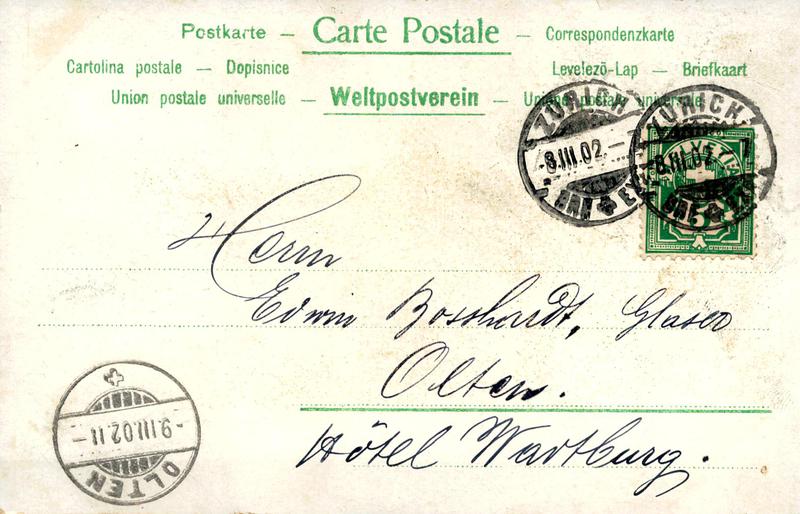 Postkarte — Carte Postale — Correspondenzkarte
Cartolina postale — Dopisnice Levelezö-Lap — Briefkaart
Union postale universelle — Weltpostverein — Unione postale universale
ZÜRICH
8.III.02.—
BRF EXP.
ZÜRICH
7
8.III.02
BRF EXP.
HELVETIA
5
Herrn
Edwin Bosshardt, Glaser
Olten.
Hôtel Wartburg.
-9.III.02.11-
OLTEN